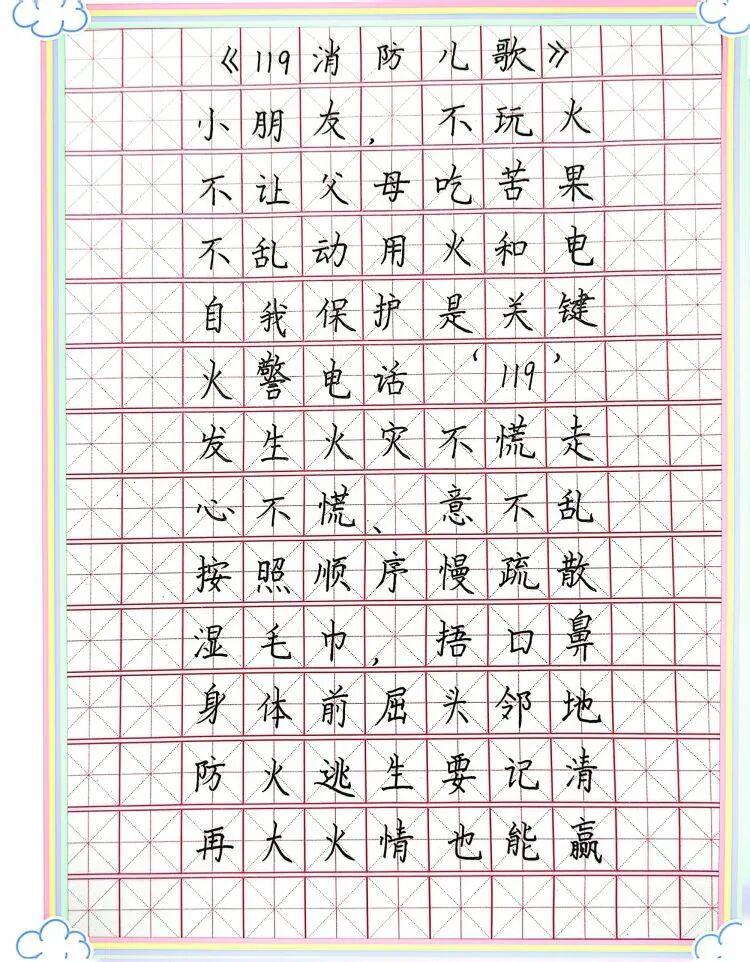 《119消防儿歌》
小朋友，不玩火
不让父母吃苦果
不乱动用火和电
自我保护是关键
火警电话‘119’
发生火灾不慌走
心不慌、意不乱
按照顺序慢疏散
湿毛巾，捂口鼻
身体前屈头邻地
防火逃生要记清
再大火情也能赢